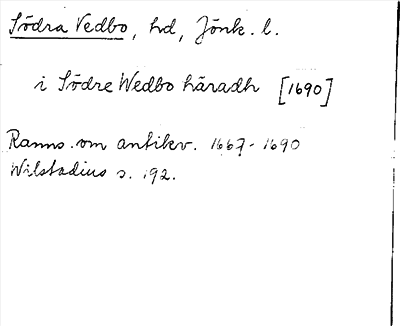 Södra Vedbo, hd, Jönk. l.
i Södre Wedbo häradh [1690]
Ranns. om antikv. 1667-1690
Wilstadius s. 192.